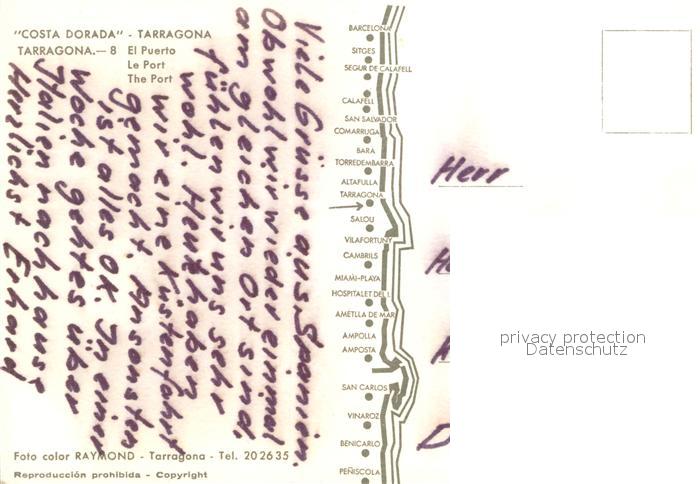 "COSTA DORADA" - TARRAGONA
TARRAGONA.— 8 El Puerto
Le Port
The Port
Viele Grüsse aus Spanien.
Obwohl wir wieder einmal
am gleichen Ort sind
fühlen wir uns sehr
wohl. Heut haben
wir eine Küstenfahrt
gemacht. Ansonsten
ist alles OK. In einer
Woche geht es über
Italien nach hause
Herzlichst
Foto color RAYMOND - Tarragona - Tel. 202635
Reproducción prohibida - Copyright
BARCELONA
SITGES
SEGUR DE CALAFELL
CALAFELL
SAN SALVADOR
COMARRUGA
BARA
TORREDEMBARRA
ALTAFULLA
TARRAGONA
SALOU
VILAFORTUNY
CAMBRILS
MIAMI-PLAYA
HOSPITALET DEL I.
AMETLLA DE MAR
AMPOLLA
AMPOSTA
SAN CARLOS
VINAROZ
BENICARLO
PEÑISCOLA
Herr
privacy protection
Datenschutz